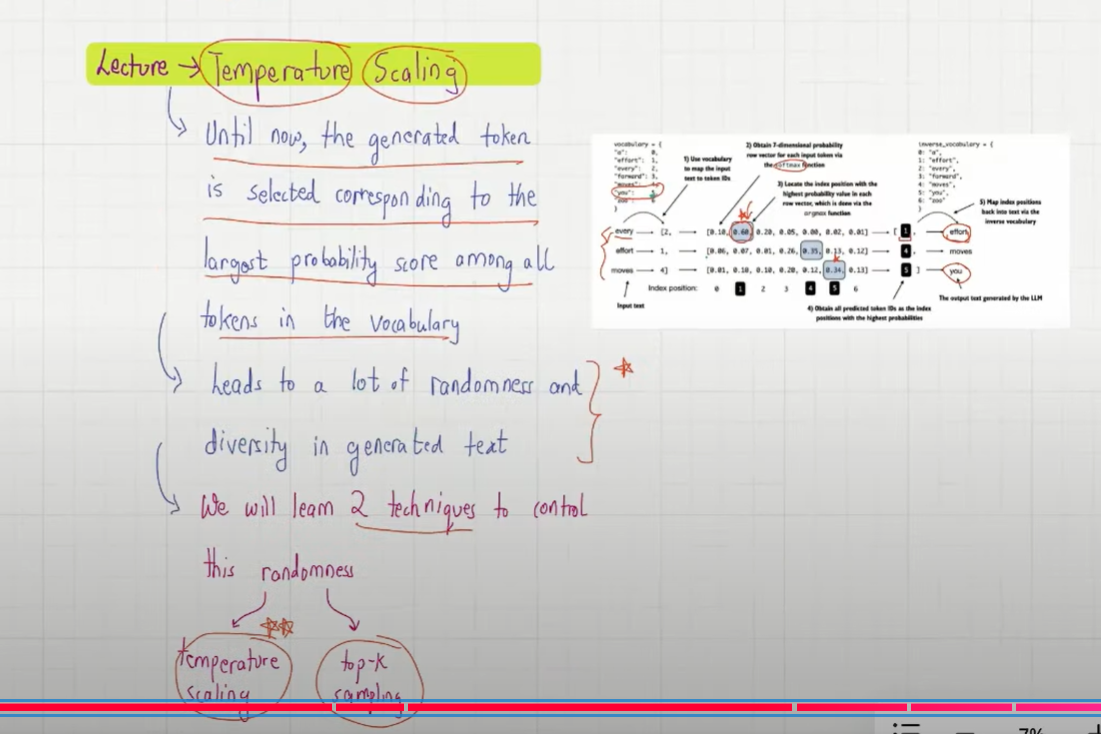 Lecture → Temperature Scaling
Until now, the generated token
is selected corresponding to the
largest probability score among all
tokens in the vocabulary
heads to a lot of randomness and
diversity in generated text
We will learn 2 techniques to control
this randomness
temperature
scaling
top-k
sampling
vocabulary = {
"a": 0,
"effort": 1,
"every": 2,
"forward": 3,
"moves":
"you":
"zoo"
}
1) Use vocabulary
to map the input
text to token IDs
2) Obtain 7-dimensional probability
row vector for each input token via
the softmax function
3) Locate the index position with the
highest probability value in each
row vector, which is done via the
argmax function
inverse_vocabulary = {
0: "a",
1: "effort",
2: "every",
3: "forward",
4: "moves",
5: "you",
6: "zoo"
}
5) Map index positions
back into text via the
inverse vocabulary
every → [2, → [0.10, 0.60, 0.20, 0.05, 0.00, 0.02, 0.01] → [ 1, → effort
effort → 1, → [0.06, 0.07, 0.01, 0.26, 0.35, 0.13, 0.12] → 4, → moves
moves → 4] → [0.01, 0.10, 0.10, 0.20, 0.12, 0.34, 0.13] → 5 ] → you
Index position: 0 1 2 3 4 5 6
Input text
The output text generated by the LLM
4) Obtain all predicted token IDs as the index
positions with the highest probabilities
7%